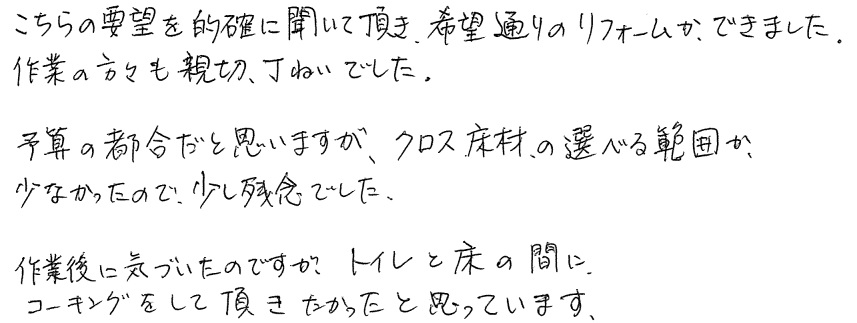 こちらの要望を的確に聞いて頂き、希望通りのリフォームができました。
作業の方々も親切、丁ねいでした。
予算の都合だと思いますが、クロス、床材、の選べる範囲が、
少なかったので、少し残念でした。
作業後に気づいたのですが、トイレと床の間に、
コーキングをして頂きたかったと思っています、